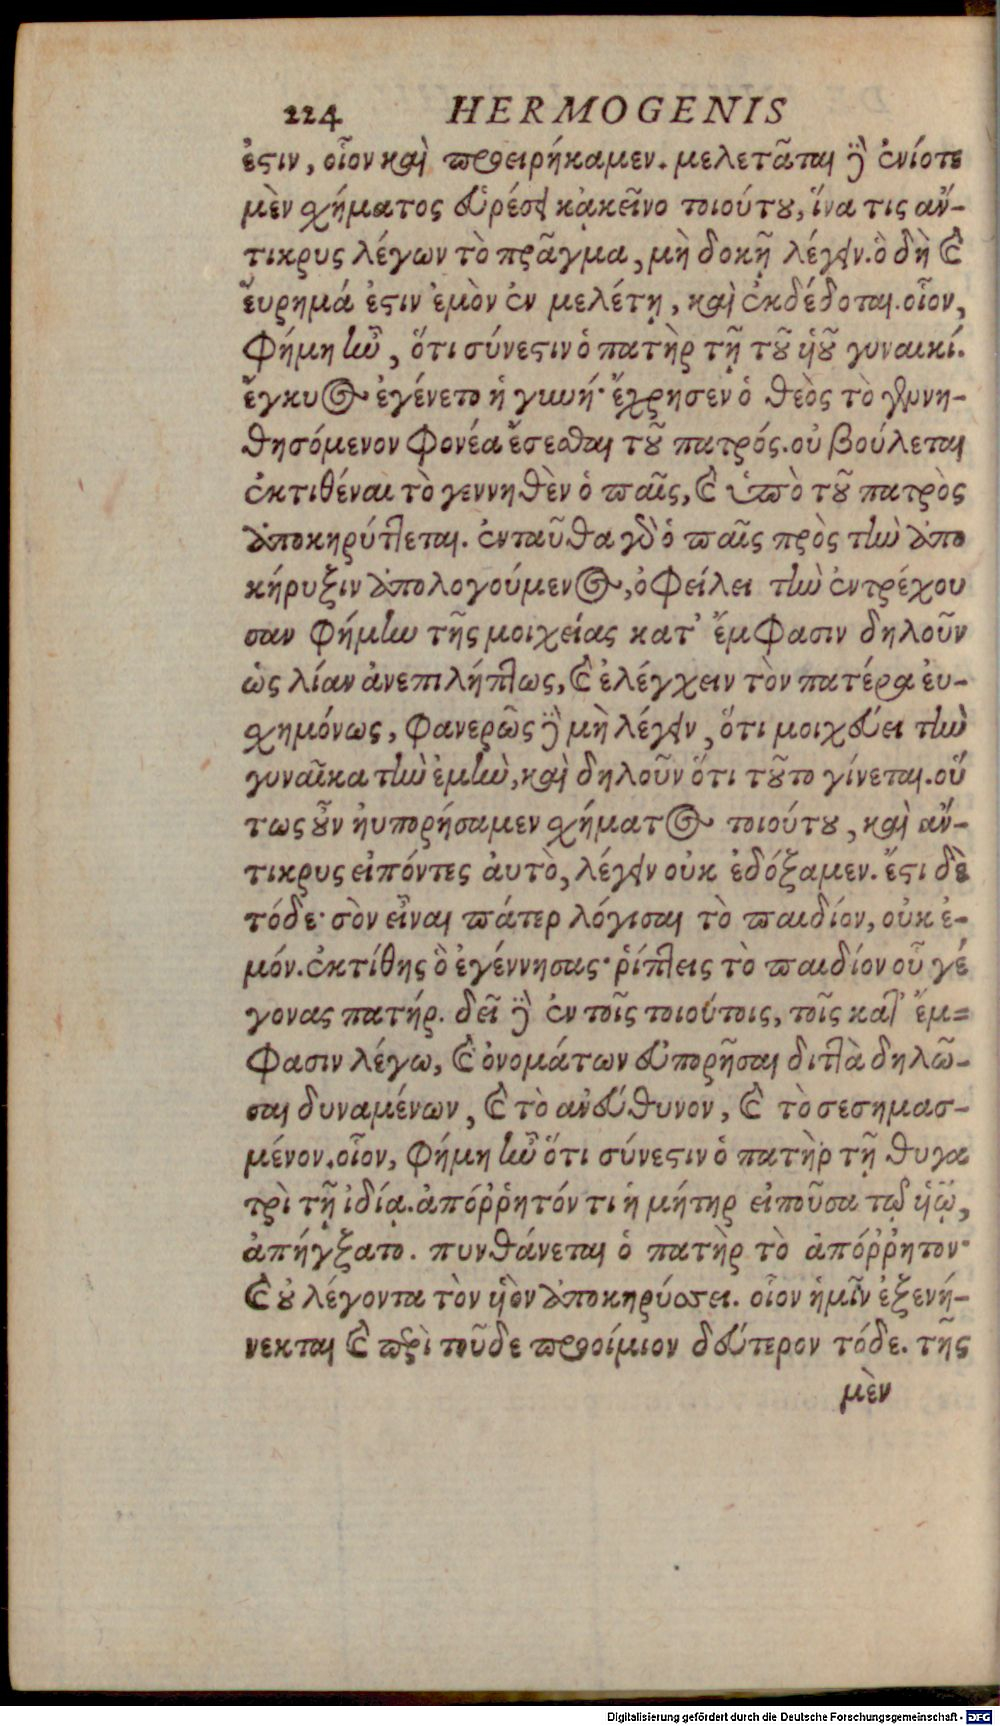 224 HERMOGENIS
ἐστιν, οἷον καὶ προειρήκαμεν. μελετᾶται δὲ ἐνίοτε
μὲν σχήματος εὑρέσει κἀκεῖνο τοιούτου, ἵνα τις ἄν-
τικρυς λέγων τὸ πρᾶγμα, μὴ δοκῇ λέγειν. ὃ δὴ καὶ
εὕρημά ἐστιν ἐμὸν ἐν μελέτῃ, καὶ ἐκδέδοται. οἷον,
φήμη ἦν, ὅτι σύνεστιν ὁ πατὴρ τῇ τοῦ υἱοῦ γυναικί.
ἔγκυος ἐγένετο ἡ γυνή· ἔχρησεν ὁ θεὸς τὸ γεννη-
θησόμενον φονέα ἔσεσθαι τοῦ πατρός. οὐ βούλεται
ἐκτιθέναι τὸ γεννηθὲν ὁ παῖς, καὶ ὑπὸ τοῦ πατρὸς
ἀποκηρύττεται. ἐνταῦθα γὰρ ὁ παῖς πρὸς τὴν ἀπο
κήρυξιν ἀπολογούμενος, ὀφείλει τὴν ἐντρέχου
σαν φήμην τῆς μοιχείας κατ' ἔμφασιν δηλοῦν
ὡς λίαν ἀνεπιλήπτως, καὶ ἐλέγχειν τὸν πατέρα εὐ-
σχημόνως, φανερῶς δὲ μὴ λέγειν, ὅτι μοιχεύει τὴν
γυναῖκα τὴν ἐμὴν, καὶ δηλοῦν ὅτι τοῦτο γίνεται. οὕ
τως οὖν ηὐπορήσαμεν σχήματος τοιούτου, καὶ ἄν-
τικρυς εἰπόντες αὐτὸ, λέγειν οὐκ ἐδόξαμεν. ἔστι δὲ
τόδε· σὸν εἶναι πάτερ λόγισαι τὸ παιδίον, οὐκ ἐ-
μόν. ἐκτίθης ὃ ἐγέννησας· ῥίπτεις τὸ παιδίον οὗ γέ
γονας πατήρ. δεῖ δὲ ἐν τοῖς τοιούτοις, τοῖς κατ' ἔμ=
φασιν λέγω, καὶ ὀνομάτων εὐπορῆσαι διττὰ δηλῶ-
σαι δυναμένων, καὶ τὸ ἀνεύθυνον, καὶ τὸ σεσημασ-
μένον. οἷον, φήμη ἦν ὅτι σύνεστιν ὁ πατὴρ τῇ θυγα
τρὶ τῇ ἰδίᾳ. ἀπόῤῥητόν τι ἡ μήτηρ εἰποῦσα τῷ υἱῷ,
ἀπήγξατο. πυνθάνεται ὁ πατὴρ τὸ ἀπόῤῥητον·
καὶ οὐ λέγοντα τὸν υἱὸν ἀποκηρύσσει. οἷον ἡμῖν ἐξενή-
νεκται καὶ περὶ τοῦδε προοίμιον δεύτερον τόδε. τῆς
μὲν
Digitalisierung gefördert durch die Deutsche Forschungsgemeinschaft - DFG